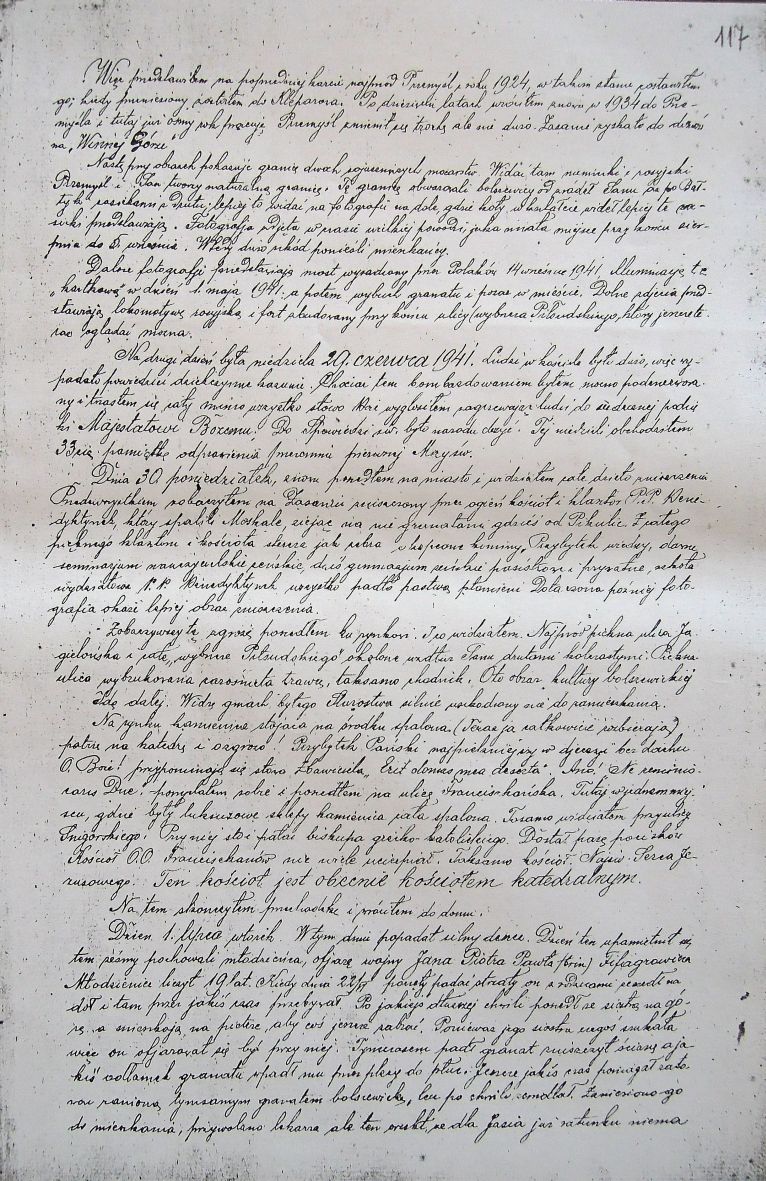 117
Więc przedstawiłem na poprzedniej karcie najprzód Przemyśl z roku 1924, w takim stanie zostawiłem
go, kiedy przeniesiony zostałem do Kleparowa. Po dziesięciu latach wróciłem znowu w 1934 do Prze-
myśla i tutaj już ósmy rok pracuję. Przemyśl zmienił się trochę ale nie dużo. Zasanie zyskało do
na „Winnej Górze"
Następny obrazek pokazuje granicę dwóch mocarstw. Widać tam niemiecki i rosyjski
Przemyśl i San tworzy naturalną granicę. Tę granicę bolszewicy od źródeł Sanu aż po Bał-
tyk z drutu, lepiej to widać na fotografii na dole gdzie w kształcie wideł lepiej te za-
sieki przedstawiają. Fotografia zdjęta w czasie wielkiej powodzi, jaka miała miejsce przy końcu sier-
pnia do 5 września. Wtedy dużo szkód ponieśli mieszkańcy.
Dalsze fotografje przedstawiają most wysadzony przez Polaków 14 września 1941. Illuminację t.z.
„kartkową" w dzień 1. maja 1941. a potem wybuch granatu i pożar w mieście. Dolne zdjęcia przed-
stawiają lokomotywę rosyjską i fort zbudowany przy końcu ulicy (wybrzeża Piłsudskiego, który jeszcze te-
raz oglądać można.
Na drugi dzień była niedziela 29. czerwca 1941. Ludzi w kościele było dużo, więc wy-
padało powiedzieć dziękczynne kazanie. Chociaż tem bombardowaniem byłem mocno podenerwowa-
ny i trząsłem się cały mimo wszystko słowo Boże wygłosiłem zagrzewając ludzi do serdecznej podzię
ki Majestatowi Bożemu. Do Spowiedzi św. było narodu dosyć. Tej niedzieli obchodziłem
33cią pamiątkę odprawienia pierwszej Mszy św.
Dnia 30 poniedziałek, znów poszedłem na miasto i widziałem całe dzieło zniszczenia
Przedewszystkiem zobaczyłem na Zasaniu zniszczony przez ogień kościół i klasztor P.P. Bene-
dyktynek, który spalili Moskale, siejąc na nie granatami gdzieś od Pikulic. Z całego
pięknego klasztoru i kościoła sterczą jak żebra kominy. Przybytek wiedzy, dawne
seminarjum nauczycielskie żeńskie, dziś gimnazjum i prywatne, szkoła
wydziałowa P.P. Benedyktynek wszystko padło pastwą płomieni Dołączona później foto-
grafia okaże lepiej obraz zniszczenia.
Zobaczywszy tę zgrozę poszedłem ku rynkowi. I co widziałem. Najprzód piękna ulica Ja-
giellońska i całe „wybrzeże Piłsudskiego" okolone wzdłuż Sanu drutami kolczastymi. Piękna
ulica wybrukowana zarośnięta trawą, taksamo chodnik. Oto obraz kultury bolszewickiej
Idę dalej. Widzę gmach byłego Starostwa silnie uszkodzony nie do zamieszkania.
Na rynku kamienice stojąca na środku spalona. (Teraz ją całkowicie rozbierają)
patrzę na katedrę i o zgrozo! Przybytek Pański najpiękniejszy w djecezji bez dachu
O Boże! przypominają się słowa Zbawiciela „Erit domus mea deserta". Ano! Ne reminis-
caris Dne. pomyślałem sobie i poszedłem na ulicę Franciszkańską. Tutaj w jednem miej-
scu, gdzie były luksusowe sklepy kamienica cała spalona. Tosamo widziałem przy ulicy
Śnigórskiego. Przy niej stoi pałac biskupa grecko-katolickiego. Dostał parę pocisków
Kościół O.O. Franciszkanów nie wiele ucierpiał. Taksamo kościół Najśw. Serca Je-
zusowego. Ten kościół jest obecnie kościołem katedralnym.
Na tem skończyłem przechadzkę i wróciłem do domu.
Dzień 1. lipca wtorek. W tym dniu popadał silny deszcz. Dzień ten upamiętnił się
tem żeśmy pochowali młodzieńca, ofjarę wojny Jana Piotra Pawła (trim) Filagrowicza
Młodzieniec liczył 19 lat. Kiedy dnia 22/VI poczęły padać strzały on z rodzicami zeszedł na
dół i tam przez jakiś czas przebywał. Po jakiejś dłuższej chwili poszedł ze siostrą na gó-
rę, a mieszkają na piętrze, aby coś jeszcze zabrać. Ponieważ jego siostra czegoś szukała
więc on ofjarował się być przy niej. Tymczasem padł granat zniszczył ścianę a ja-
kiś odłamek granatu wpadł mu przez plecy do płuc. Jeszcze jakiś czas pomagał rato-
wać ranioną tymsamym granatem bolszewickę, lecz po chwili zemdlał. Zaniesiono go
do mieszkania, przywołano lekarza ale ten orzekł, że dla Jasia już ratunku niema